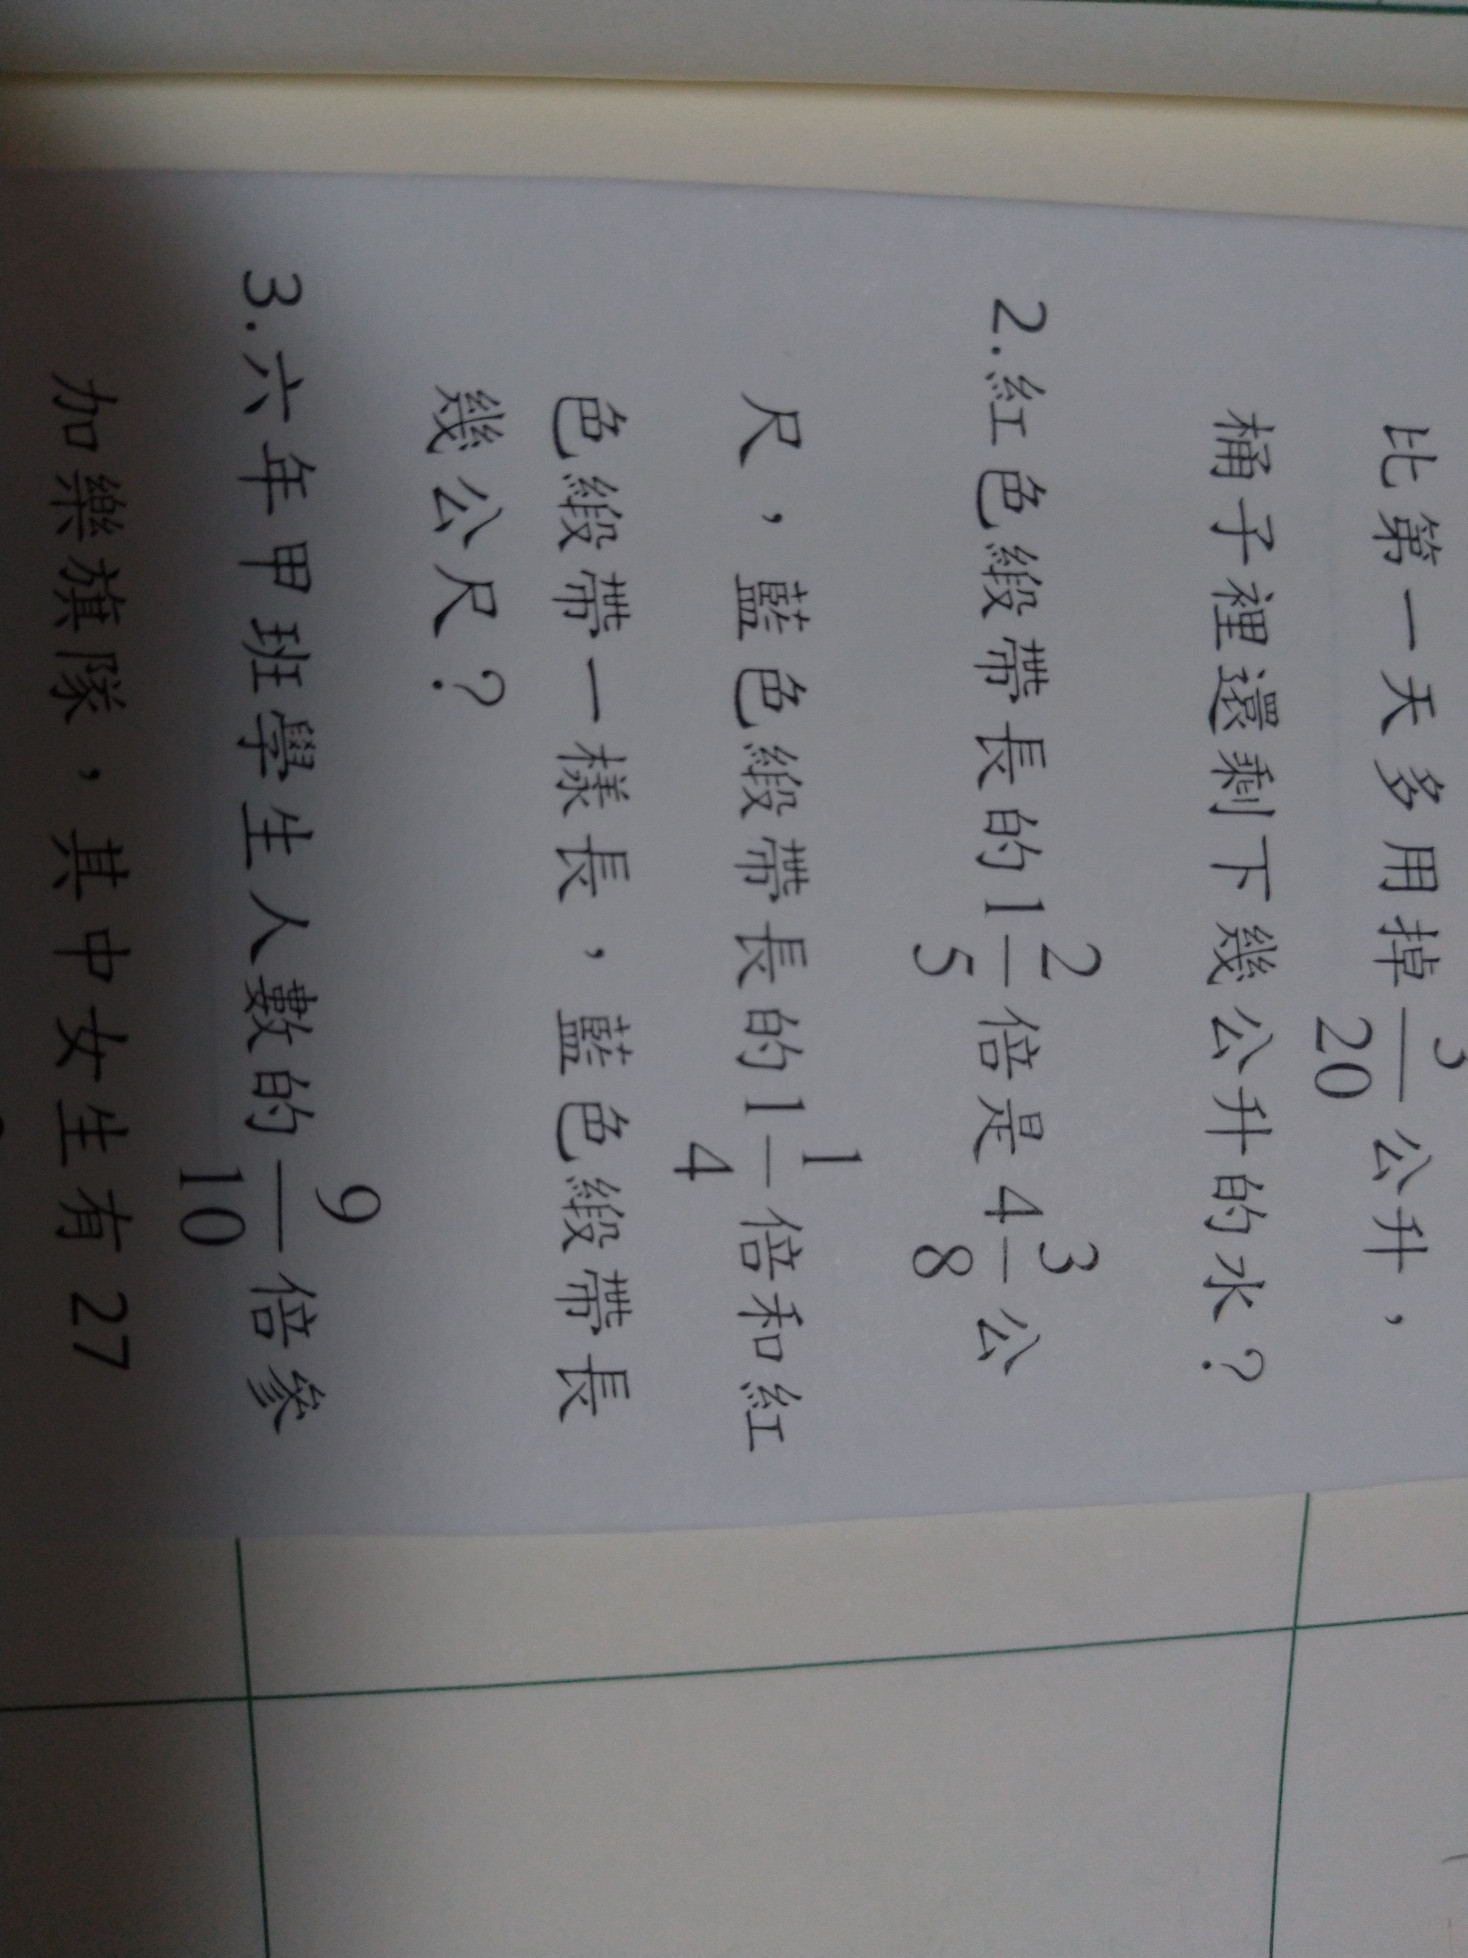 比第一天多用掉 3/20 公升，
桶子裡還剩下幾公升的水？
2.紅色緞帶長的1 2/5 倍是 4 3/8 公
尺，藍色緞帶長的1 1/4 倍和紅
色緞帶一樣長，藍色緞帶長
幾公尺？
3.六年甲班學生人數的 9/10 倍參
加樂旗隊，其中女生有 27